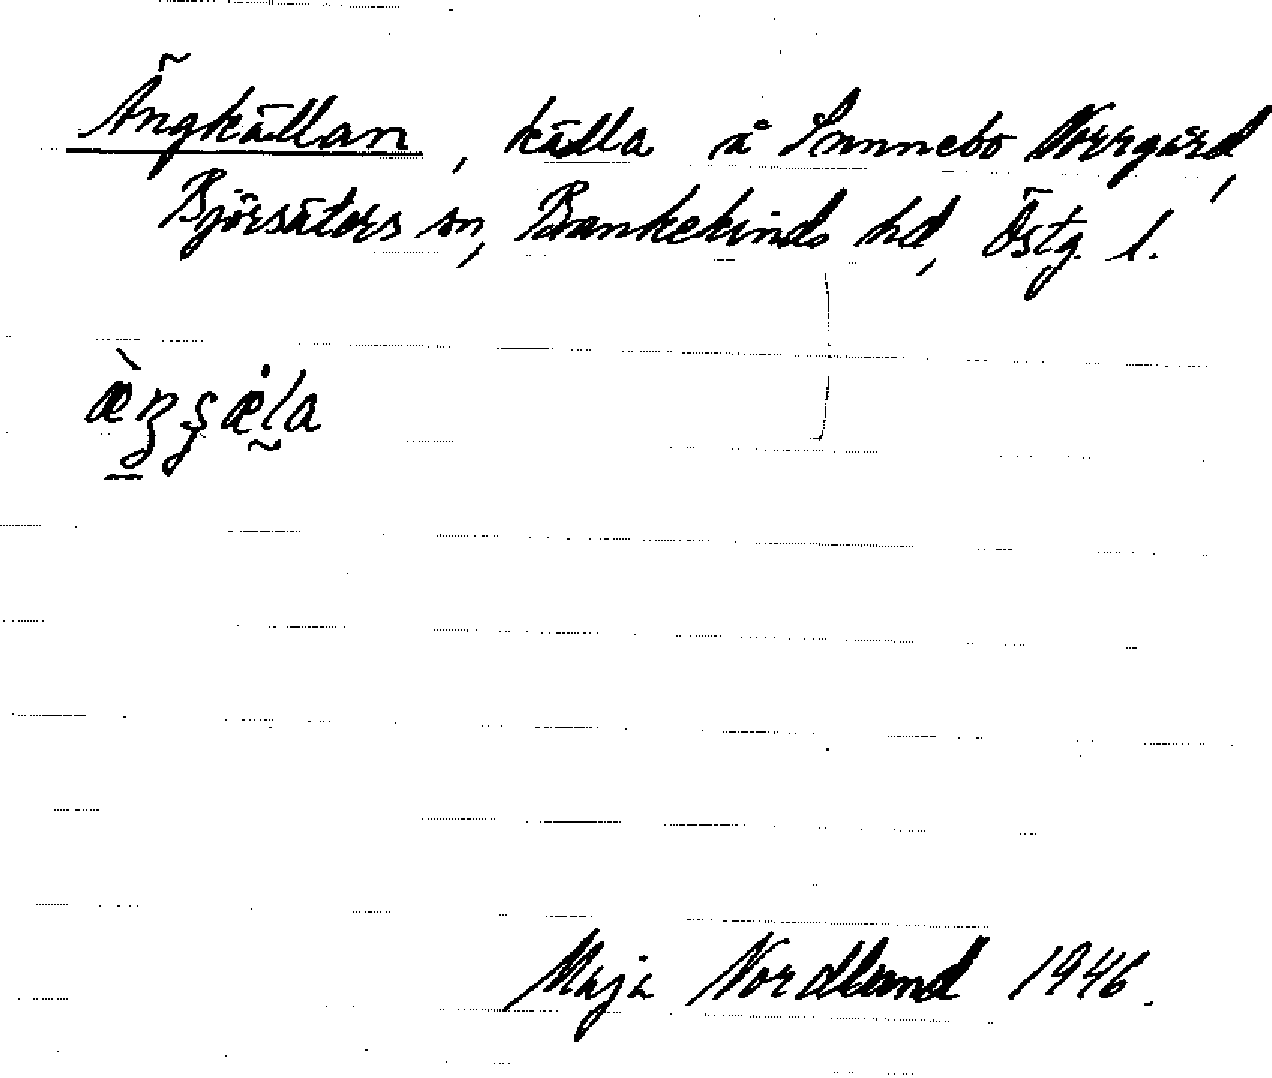 Ängkällan, källa å Sunnebo Norrgård,
Björsäters sn, Bankekinds hd, Östg. l.
Maja Nordland 1946.